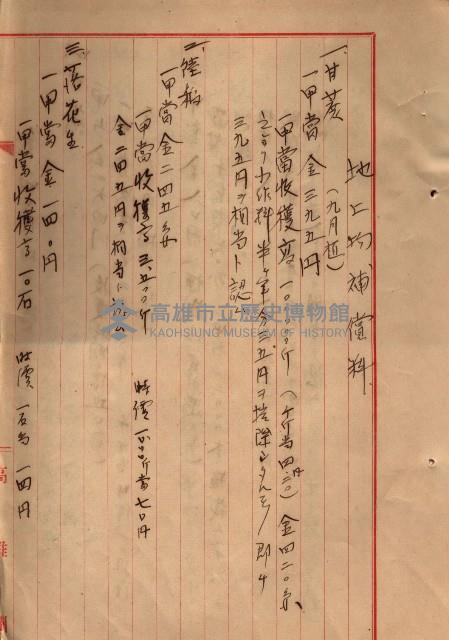 地上物補償料
一、甘蔗 (九月植)
一甲當 金三九五円
一甲當收穫高 一〇〇,〇〇〇斤 (千斤当四円二〇) 金四二〇円
三九五円ヲ相当ト認ム
二、陸稻
一甲當 金二四五円
一甲當收穫高 三、五〇〇斤 時價 一〇〇斤當七円
金二四五円ヲ相当ト認ム
三、落花生
一甲當 金一四〇円
一甲當收穫高 一〇石 時價 一石当 一四円
高雄市立歷史博物館
KAOHSIUNG MUSEUM OF HISTORY
高雄